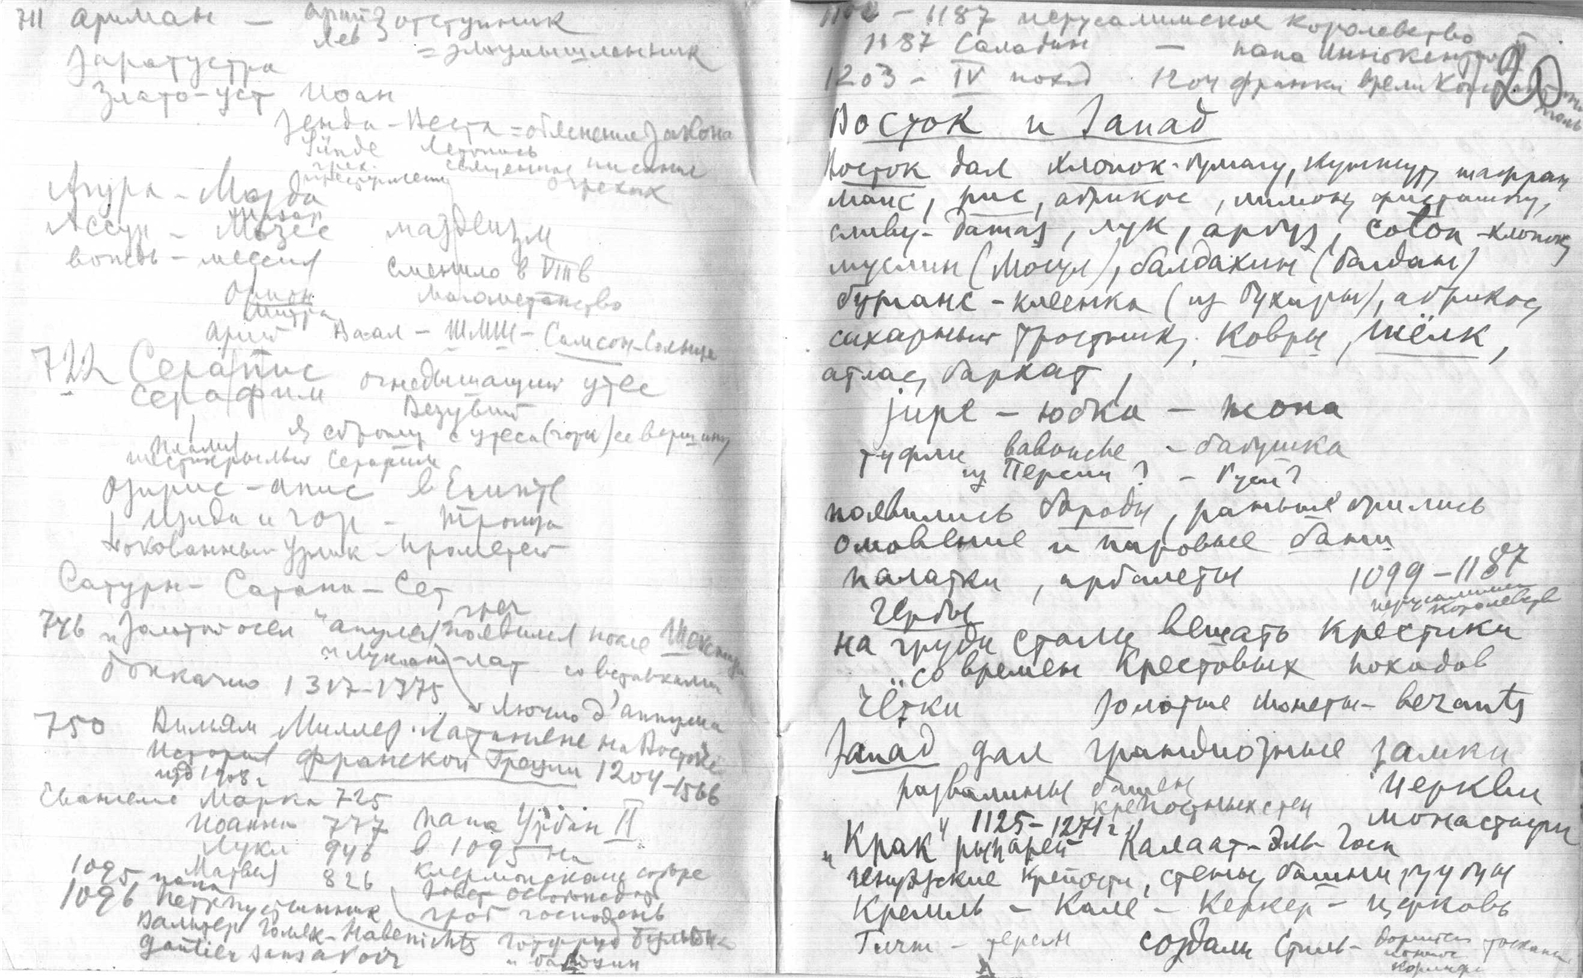 711 ариман — арий отступник
лев = злоумышленник
Заратустра
Злато-уст Иоан
Зенда-Веста = объяснение закона
Sünde летопись
грех священное писание
о грехах
Агура-Мазда
Ассур — Мозес маздеизм
вождь — мессия сменило в VII в
магометанство
арий Ваал — ШМШ — Самсон-Солнце
722 Серапис
Серафим огнедышащий утес
Везувий
я сброшу с утеса (горы) ее вершину
шестикрылый серафим
Озирис — апис в Египте
Изида и гор — троица
Прикованный узник — Прометей
Сатурн — Сатана — Сет
746 "Золотой осел" апулея появился после
"Лукиана" — лат со вставками
боккачио 1317-1375
Лючио d'аппулиа
750 Вильям Миллер. Латиняне на Востоке
История франкской Греции 1204-1566
изд 1908 г
Евангелие Марка 725
Иоанна 777 папа Урбан II
Луки 946 в 1095 на
Матвея 826 клермонском соборе
1095 папа
1096 Петр пустынник гроб господень
Вальтер Голяк-Habenichts Готфрид Бульона
gautier sans avoir
— 1187 иерусалимское королевство
1187 Саладин — папа Иннокентий
1203 — IV поход 1204 франки взяли
20
Восток и Запад
Восток дал хлопок-бумагу, кунжут, шафран
маис, рис, абрикос, лимон, фисташку,
сливу-дамас, лук, арбуз, coton-хлопок,
муслин (Мосул), балдахин (Багдат)
— клеенка (из Бухары), абрикос,
сахарный тростник, ковры, шёлк,
атлас, бархат,
jupe — юбка — жопа
туфли babouche — бабушка
из Персии? — Руси?
появились бороды, раньше брились
омовение и паровые бани
палатки, арбалеты 1099-1187
иерусалимское королевство
Гербы
на груди стали вешать крестики
со времен Крестовых походов
Чётки золотые монеты — bezants
Запад дал грандиозные замки
развалины башен церкви
крепостных стен
1125-1271 г. монастыри
"Крак" рыцарей Калаат-Эль-Госн
генуэзские крепости, стены, башни
Кремль — Кале — Керкер — церковь
— терем создали стиль —